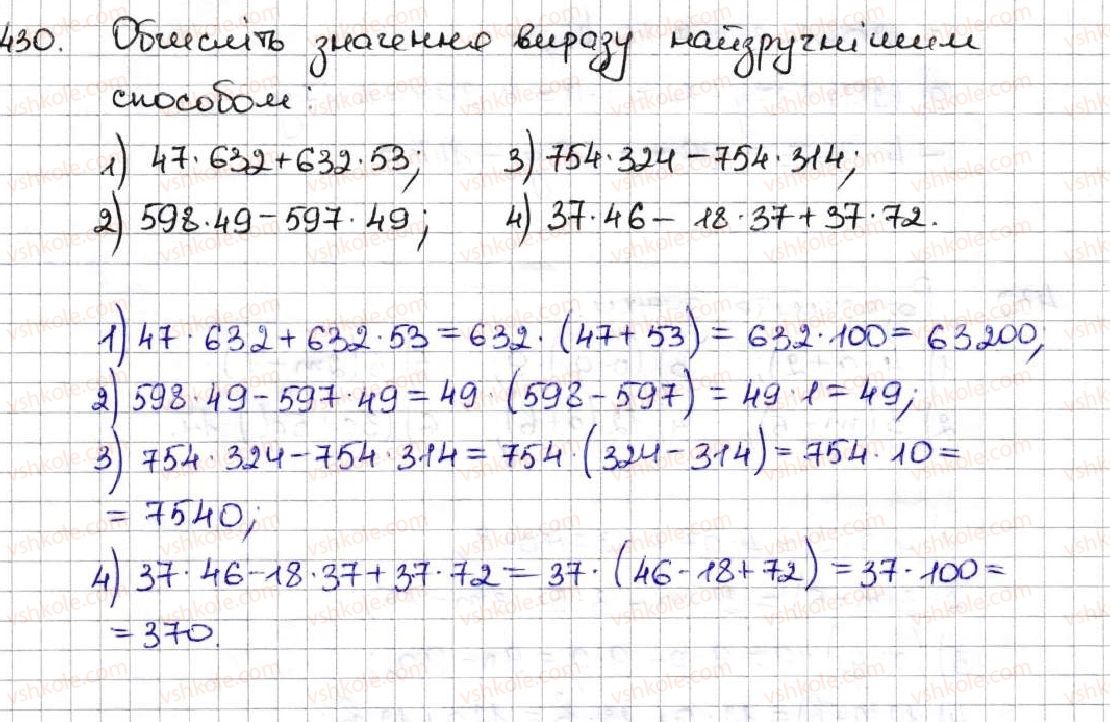 430. Обчисліть значення виразу найзручнішим
способом:
1) 47·632+632·53; 3) 754·324-754·314;
2) 598·49-597·49; 4) 37·46- 18·37+37·72.
1) 47·632+632·53=632·(47+53)=632·100=63200;
2) 598·49-597·49=49·(598-597)=49·1=49;
3) 754·324-754·314=754·(324-314)=754·10=
=7540;
4) 37·46-18·37+37·72=37·(46-18+72)=37·100=
=370.